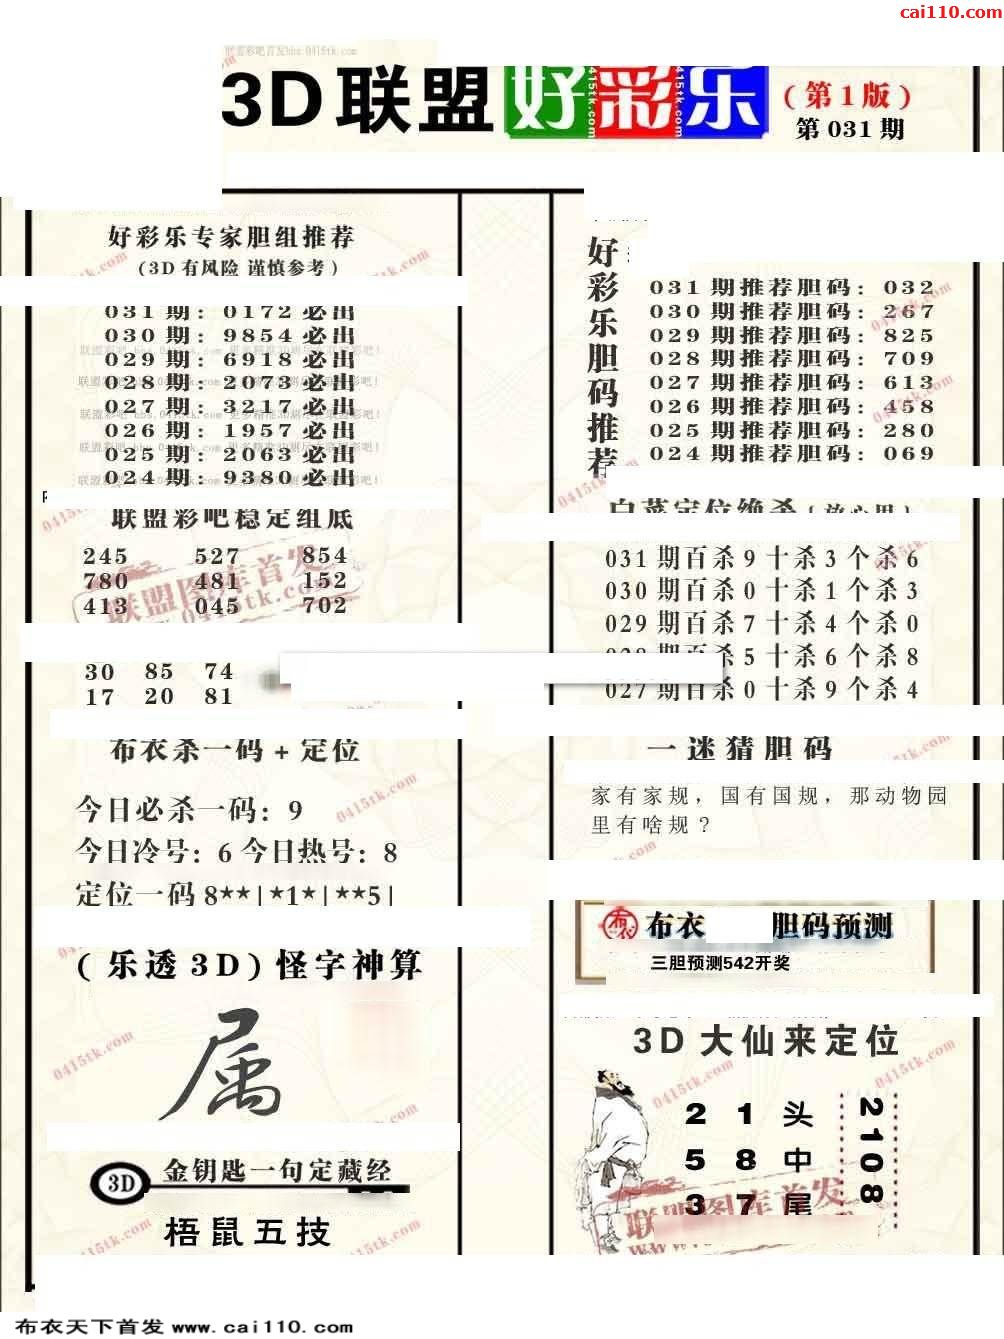 cai110.com
3D联盟好彩乐
(第1版)
第031期
好彩乐专家胆组推荐
(3D有风险 谨慎参考)
031期: 0172必出
030期: 9854必出
029期: 6918必出
028期: 2073必出
027期: 3217必出
026期: 1957必出
025期: 2063必出
024期: 9380必出
联盟彩吧稳定组底
245 527 854
780 481 152
413 045 702
30 85 74
17 20 81
布衣杀一码+定位
今日必杀一码: 9
今日冷号: 6 今日热号: 8
定位一码 8**|*1*|**5|
(乐透3D)怪字神算
属
3D 金钥匙一句定藏经
梧鼠五技
好彩乐胆码推荐
031期推荐胆码: 032
030期推荐胆码: 267
029期推荐胆码: 825
028期推荐胆码: 709
027期推荐胆码: 613
026期推荐胆码: 458
025期推荐胆码: 280
024期推荐胆码: 069
031期百杀9十杀3个杀6
030期百杀0十杀1个杀3
029期百杀7十杀4个杀0
028期百杀5十杀6个杀8
027期百杀0十杀9个杀4
一迷猜胆码
家有家规，国有国规，那动物园
里有啥规？
布衣 胆码预测
三胆预测542开奖
3D大仙来定位
2 1 头
5 8 中
3 7 尾
2108
联盟图库首发
0415tk.com
布衣天下首发 www.cai110.com